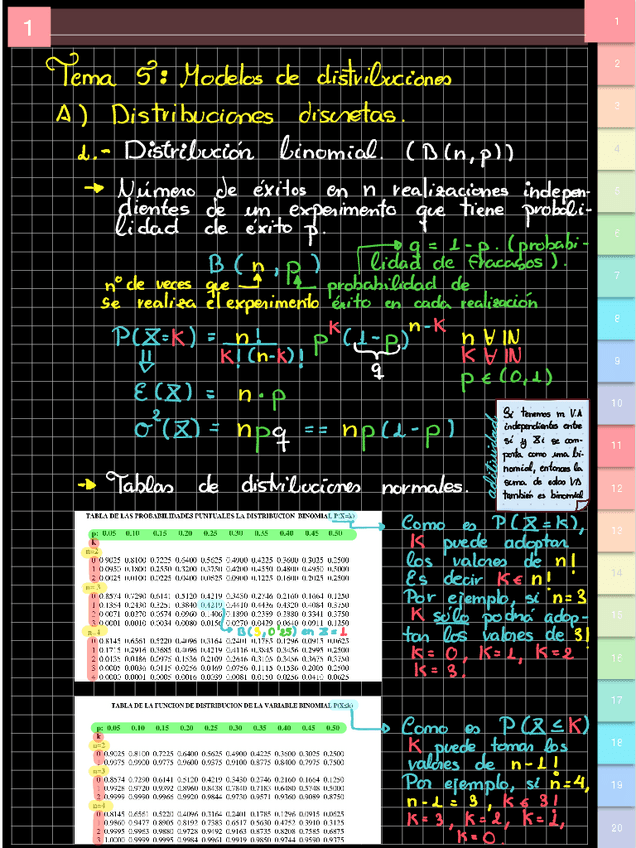 1
Tema 5: Modelos de distribuciones
A) Distribuciones discretas.
1.- Distribución binomial. (B(n,p))
→ Número de éxitos en n realizaciones indepen-
dientes de un experimento que tiene probabi-
lidad de éxito p.
q = 1-p. (probabi-
lidad de fracasos).
B(n,p)
nº de veces que
se realiza el experimento
probabilidad de
éxito en cada realización
P(X=K) = n! / K!(n-K)! p^K (1-p)^n-K
q
n ∀ ℕ
K ∀ ℕ
p ∈ (0,1)
E(X) = n·p
σ²(X) = npq == np(1-p)
Si tenemos m V.A
independientes entre
sí y Xi se com-
porta como una bi-
nomial, entonces la
suma de estas VA
también es binomial
→ Tablas de distribuciones normales.
TABLA DE LAS PROBABILIDADES PUNTUALES LA DISTRIBUCION BINOMIAL P(X=k)
p: 0.05 0.10 0.15 0.20 0.25 0.30 0.35 0.40 0.45 0.50
k
n=2
0 0.9025 0.8100 0.7225 0.6400 0.5625 0.4900 0.4225 0.3600 0.3025 0.2500
1 0.0950 0.1800 0.2550 0.3200 0.3750 0.4200 0.4550 0.4800 0.4950 0.5000
2 0.0025 0.0100 0.0225 0.0400 0.0625 0.0900 0.1225 0.1600 0.2025 0.2500
n=3
0 0.8574 0.7290 0.6141 0.5120 0.4219 0.3430 0.2746 0.2160 0.1664 0.1250
1 0.1354 0.2430 0.3251 0.3840 0.4219 0.4410 0.4436 0.4320 0.4084 0.3750
2 0.0071 0.0270 0.0574 0.0960 0.1406 0.1890 0.2389 0.2880 0.3341 0.3750
3 0.0001 0.0010 0.0034 0.0080 0.0156 0.0270 0.0429 0.0640 0.0911 0.1250
B(3,0'25) en X=1
n=4
0 0.8145 0.6561 0.5220 0.4096 0.3164 0.2401 0.1785 0.1296 0.0915 0.0625
1 0.1715 0.2916 0.3685 0.4096 0.4219 0.4116 0.3845 0.3456 0.2995 0.2500
2 0.0135 0.0486 0.0975 0.1536 0.2109 0.2646 0.3105 0.3456 0.3675 0.3750
3 0.0005 0.0036 0.0115 0.0256 0.0469 0.0756 0.1115 0.1536 0.2005 0.2500
4 0.0000 0.0001 0.0005 0.0016 0.0039 0.0081 0.0150 0.0256 0.0410 0.0625
Como es P(X=K),
K puede adoptar
los valores de n!
Es decir K ∈ n!
Por ejemplo, si n=3
K sólo podrá adop-
tar los valores de 3!
K=0, K=1, K=2
K=3.
TABLA DE LA FUNCION DE DISTRIBUCION DE LA VARIABLE BINOMIAL P(X≤k)
p: 0.05 0.10 0.15 0.20 0.25 0.30 0.35 0.40 0.45 0.50
k
n=2
0 0.9025 0.8100 0.7225 0.6400 0.5625 0.4900 0.4225 0.3600 0.3025 0.2500
1 0.9975 0.9900 0.9775 0.9600 0.9375 0.9100 0.8775 0.8400 0.7975 0.7500
n=3
0 0.8574 0.7290 0.6141 0.5120 0.4219 0.3430 0.2746 0.2160 0.1664 0.1250
1 0.9928 0.9720 0.9392 0.8960 0.8438 0.7840 0.7183 0.6480 0.5748 0.5000
2 0.9999 0.9990 0.9966 0.9920 0.9844 0.9730 0.9571 0.9360 0.9089 0.8750
n=4
0 0.8145 0.6561 0.5220 0.4096 0.3164 0.2401 0.1785 0.1296 0.0915 0.0625
1 0.9860 0.9477 0.8905 0.8192 0.7383 0.6517 0.5630 0.4752 0.3910 0.3125
2 0.9995 0.9963 0.9880 0.9728 0.9492 0.9163 0.8735 0.8208 0.7585 0.6875
3 1.0000 0.9999 0.9995 0.9984 0.9961 0.9919 0.9850 0.9744 0.9590 0.9375
Como es P(X≤K)
K puede tomar los
valores de n-1!
Por ejemplo, si n=4,
n-1=3, K ≤ 3!
K=3, K=2, K=1,
K=0
1
2
3
4
5
6
7
8
9
10
11
12
13
14
15
16
17
18
19
20